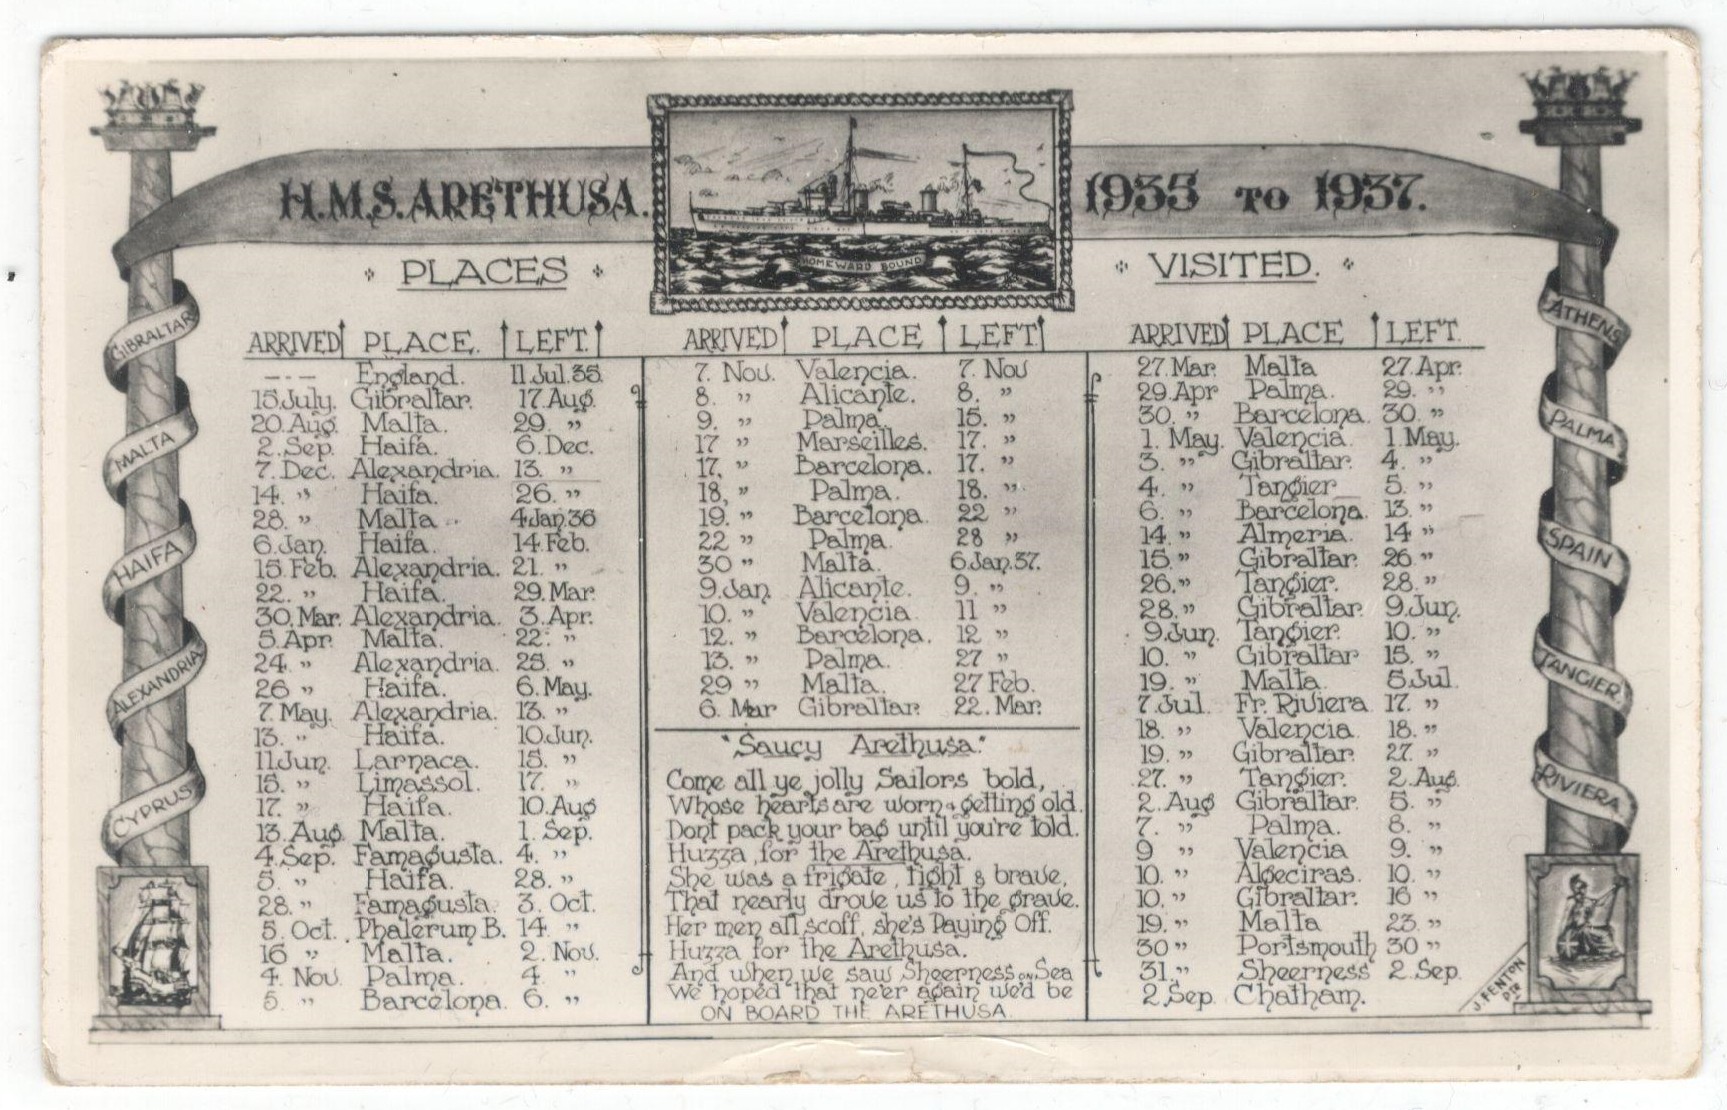 H.M.S. ARETHUSA. 1935 TO 1937.
HOMEWARD BOUND
PLACES VISITED.
GIBRALTAR
MALTA
HAIFA
ALEXANDRIA
CYPRUS
ARRIVED PLACE. LEFT.
—·— England. 11.Jul.35.
15.July. Gibraltar. 17.Aug.
20.Aug. Malta. 29. ”
2.Sep. Haifa. 6.Dec.
7.Dec. Alexandria. 13. ”
14. ” Haifa. 26. ”
28. ” Malta 4.Jan.36
6.Jan. Haifa. 14.Feb.
15.Feb. Alexandria. 21. ”
22. ” Haifa. 29.Mar.
30.Mar. Alexandria. 3.Apr.
5.Apr. Malta. 22. ”
24. ” Alexandria. 25. ”
26 ” Haifa. 6.May.
7.May. Alexandria. 13. ”
13. ” Haifa. 10.Jun.
11.Jun. Larnaca. 15. ”
15. ” Limassol. 17. ”
17. ” Haifa. 10.Aug
13.Aug. Malta. 1.Sep.
4.Sep. Famagusta. 4. ”
5. ” Haifa. 28. ”
28. ” Famagusta. 3.Oct.
5.Oct. Phalerum B. 14. ”
16 ” Malta. 2.Nov.
4.Nov Palma. 4 ”
5. ” Barcelona. 6. ”
ARRIVED PLACE LEFT
7. Nov. Valencia. 7. Nov
8. ” Alicante. 8. ”
9. ” Palma. 15. ”
17 ” Marseilles. 17. ”
17. ” Barcelona. 17. ”
18, ” Palma. 18. ”
19. ” Barcelona. 22 ”
22 ” Palma. 28 ”
30 ” Malta. 6.Jan.37.
9.Jan Alicante. 9. ”
10. ” Valencia. 11 ”
12. ” Barcelona. 12 ”
13. ” Palma. 27 ”
29 ” Malta. 27 Feb.
6. Mar Gibraltar. 22.Mar.
"Saucy Arethusa."
Come all ye jolly Sailors bold,
Whose hearts are worn & getting old.
Dont pack your bag until you're told.
Huzza, for the Arethusa.
She was a frigate, tight & brave,
That nearly drove us to the grave.
Her men all scoff, she's Paying Off.
Huzza for the Arethusa.
And when we saw Sheerness ON Sea
We hoped that ne'er again we'd be
ON BOARD THE ARETHUSA.
ARRIVED PLACE LEFT.
27.Mar. Malta 27.Apr.
29.Apr Palma. 29. ”
30. ” Barcelona. 30. ”
1. May. Valencia. 1.May.
3. ” Gibraltar. 4. ”
4. ” Tangier 5. ”
6. ” Barcelona. 13. ”
14. ” Almeria. 14 ”
15. ” Gibraltar. 26 ”
26. ” Tangier. 28. ”
28. ” Gibraltar. 9.Jun.
9.Jun. Tangier. 10. ”
10. ” Gibraltar 15. ”
19. ” Malta. 5.Jul.
7.Jul. Fr. Riviera 17. ”
18. ” Valencia. 18. ”
19. ” Gibraltar. 27. ”
27. ” Tangier. 2.Aug.
2.Aug Gibraltar. 5. ”
7. ” Palma. 8. ”
9 ” Valencia 9. ”
10. ” Algeciras. 10. ”
10. ” Gibraltar. 16 ”
19. ” Malta 23. ”
30 ” Portsmouth 30 ”
31. ” Sheerness 2.Sep.
2.Sep Chatham.
ATHENS
PALMA
SPAIN
TANGIER
RIVIERA
J. FENTON